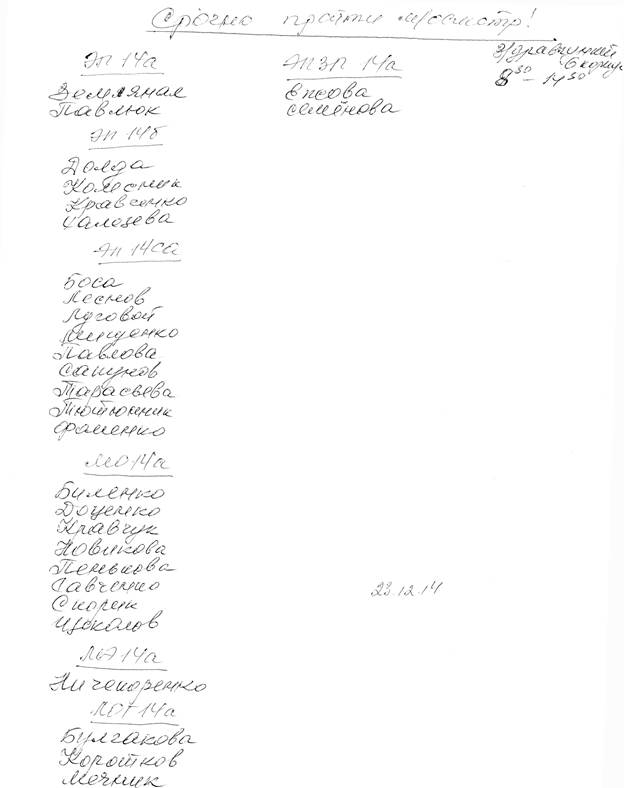 Срочно пройти м/осмотр!
Эп 14а
Земляная
Павлюк
Эп 14б
Долда
Колесник
Кравченко
Эп 14са
Боса
Леснов
Луговой
Павлова
Сапунов
Тарасьева
Тютюнник
Фоменко
МО14а
Биленко
Доценко
Кравчук
Новикова
Пенькова
Савченко
Скорик
Цюкалов
14а
Ничепоренко
14а
Булгакова
Коротков
Мечник
ЭПЗП 14а
Ежова
Семёнова
Здравпункт
6 корпус
8³⁰ – 14³⁰
23.12.14